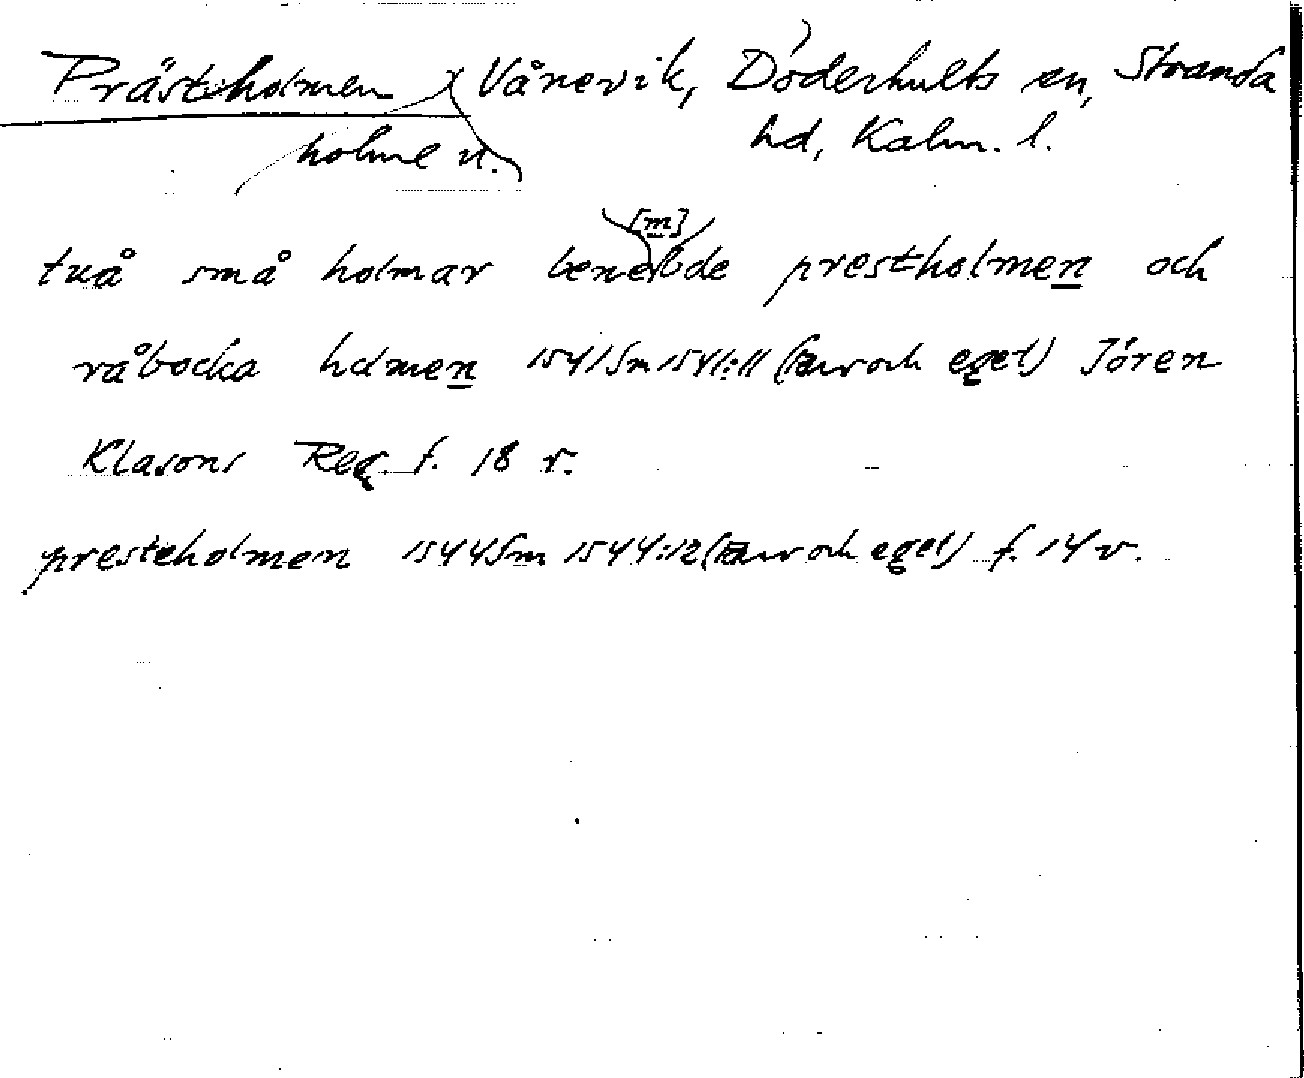 Prästeholmen Vånevik, Döderhults sn, Stranda
holme v. hd, Kalm. l.
[m]
tuå små holmar benebde prestholmen och
råbocka holmen 1541 Sm 1541:11 (Tax och egel) Jören
Klasons Reg. f. 18 r.
presteholmen 1544 Sm 1544:12 ( och egel) f. 14 v.